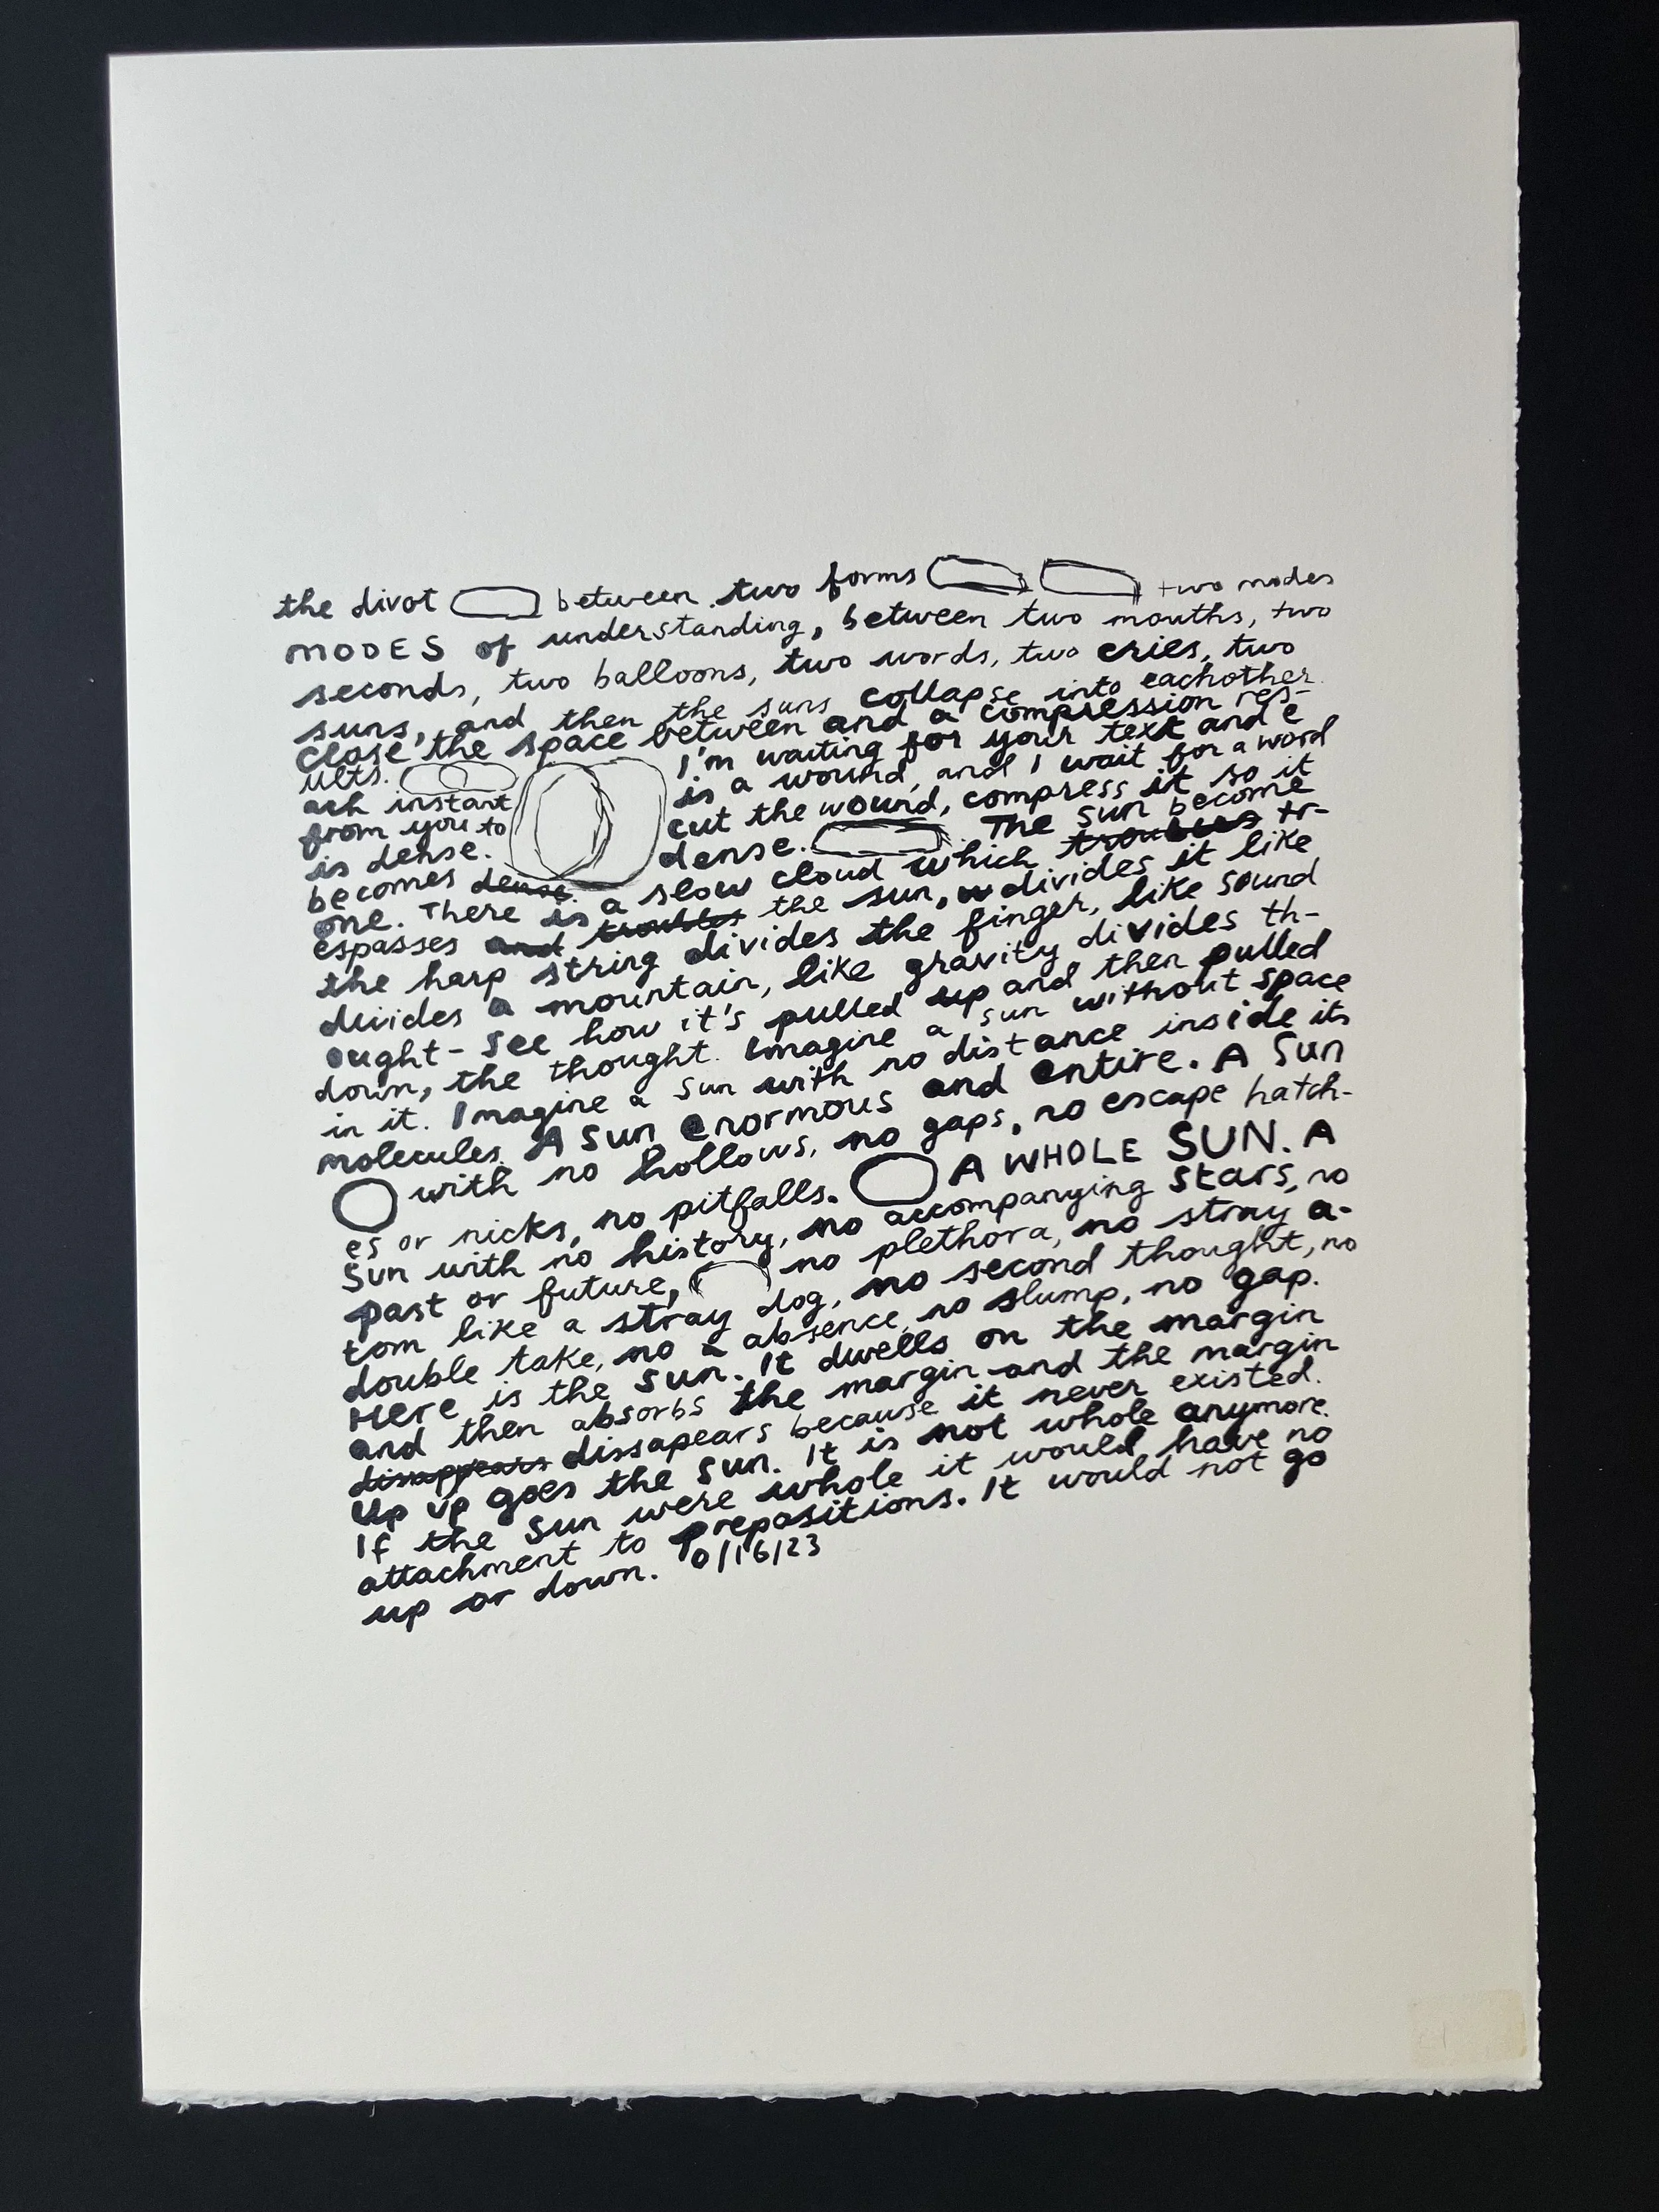 the divot between two forms two modes
MODES of understanding, between two mouths, two
seconds, two balloons, two words, two cries, two
suns, and then the suns collapse into eachother
close the space between and a compression res-
ults. I'm waiting for your text and e
ach instant is a wound, and I wait for a word
from you to cut the wound, compress it so it
is dense.
becomes dense. dense. The sun become
one. There is a slow cloud which troubles tr-
espasses and troubles the sun, w divides it like
the harp string divides the finger, like sound
divides a mountain, like gravity divides th-
ought- see how it's pulled up and then pulled
down, the thought. Imagine a sun without space
in it. Imagine a sun with no distance inside its
molecules. A sun enormous and entire. A Sun
with no hollows, no gaps, no escape hatch-
es or nicks, no pitfalls. A WHOLE SUN. A
Sun with no history, no accompanying stars, no
past or future, no plethora, no stray a-
tom like a stray dog, no second thought, no
double take, no a absence, no slump, no gap.
Here is the sun. It dwells on the margin
and then absorbs the margin and the margin
disappears dissapears because it never existed.
Up up goes the sun. It is not whole anymore.
If the sun were whole it would have no
attachment to prepositions. It would not go
up or down. 10/16/23